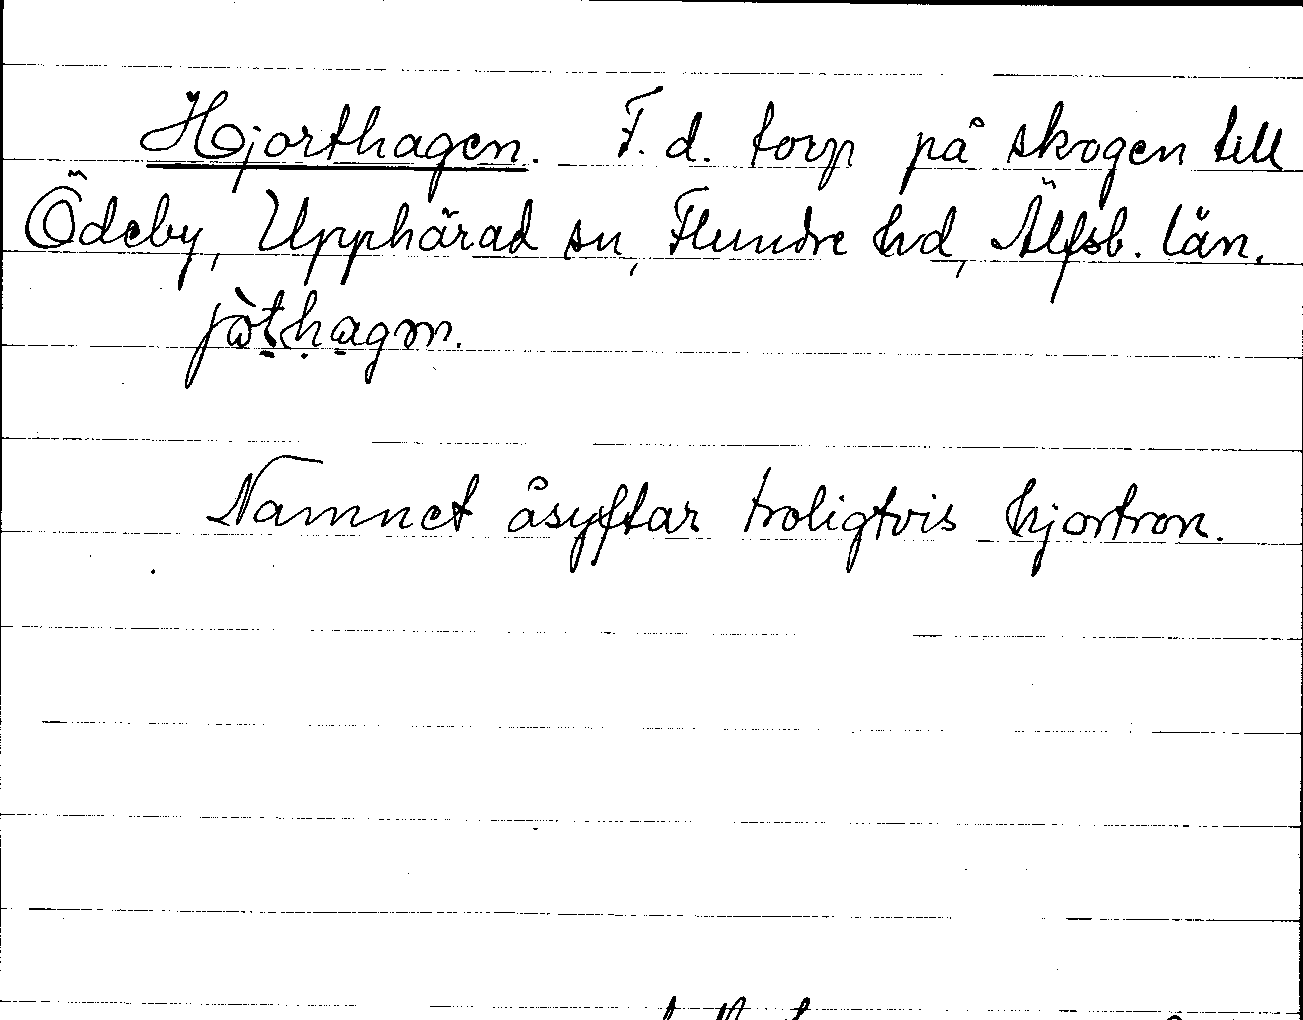 Hjorthagen. F. d. torp på skogen till
Ödeby, Upphärad sn, Flundre hd, Älfsb. län.
jòt̠ḥa̠gɷn.
Namnet åsyftar troligtvis hjortron.